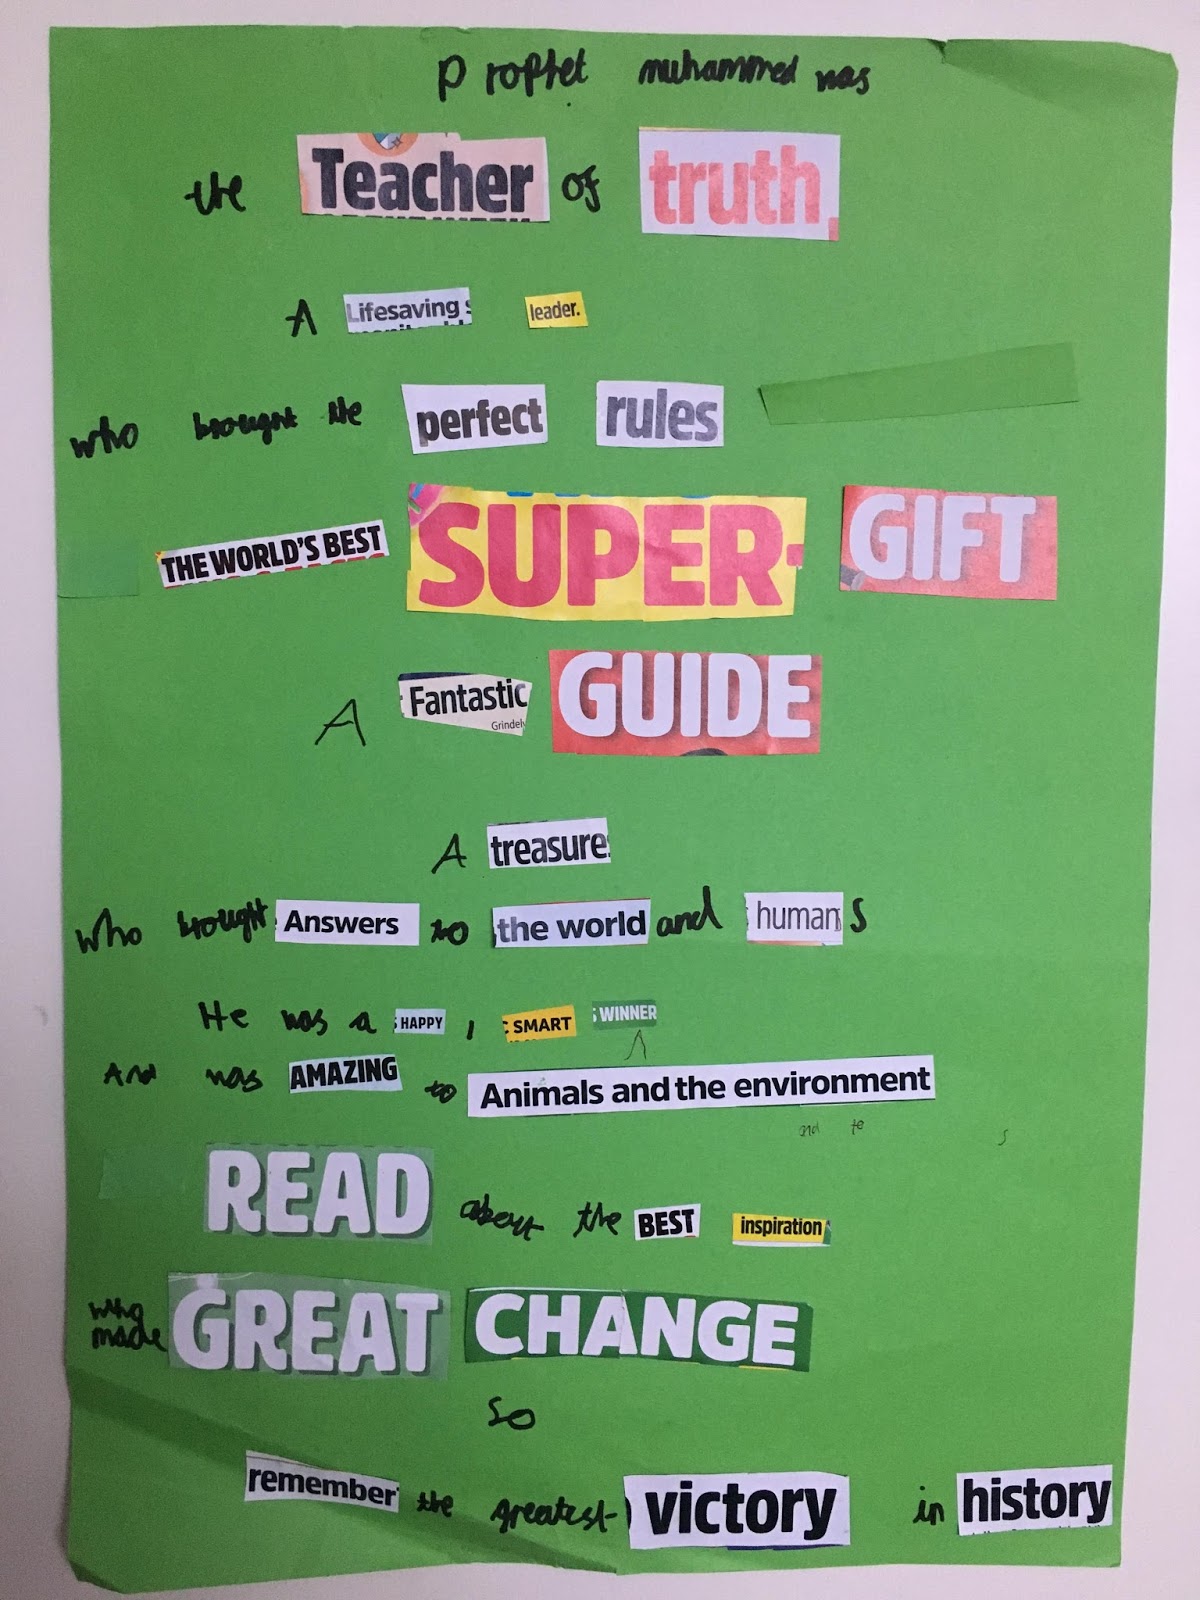 Prophet muhammed was
the Teacher of truth
A Lifesaving leader.
who brought the perfect rules
THE WORLD'S BEST SUPER- GIFT
A Fantastic GUIDE
Grindel
A treasure
who brought Answers to the world and humans
He was a HAPPY , SMART WINNER
And was AMAZING to Animals and the environment
and te s
READ about the BEST inspiration
who made GREAT CHANGE
so
remember the greatest victory in history